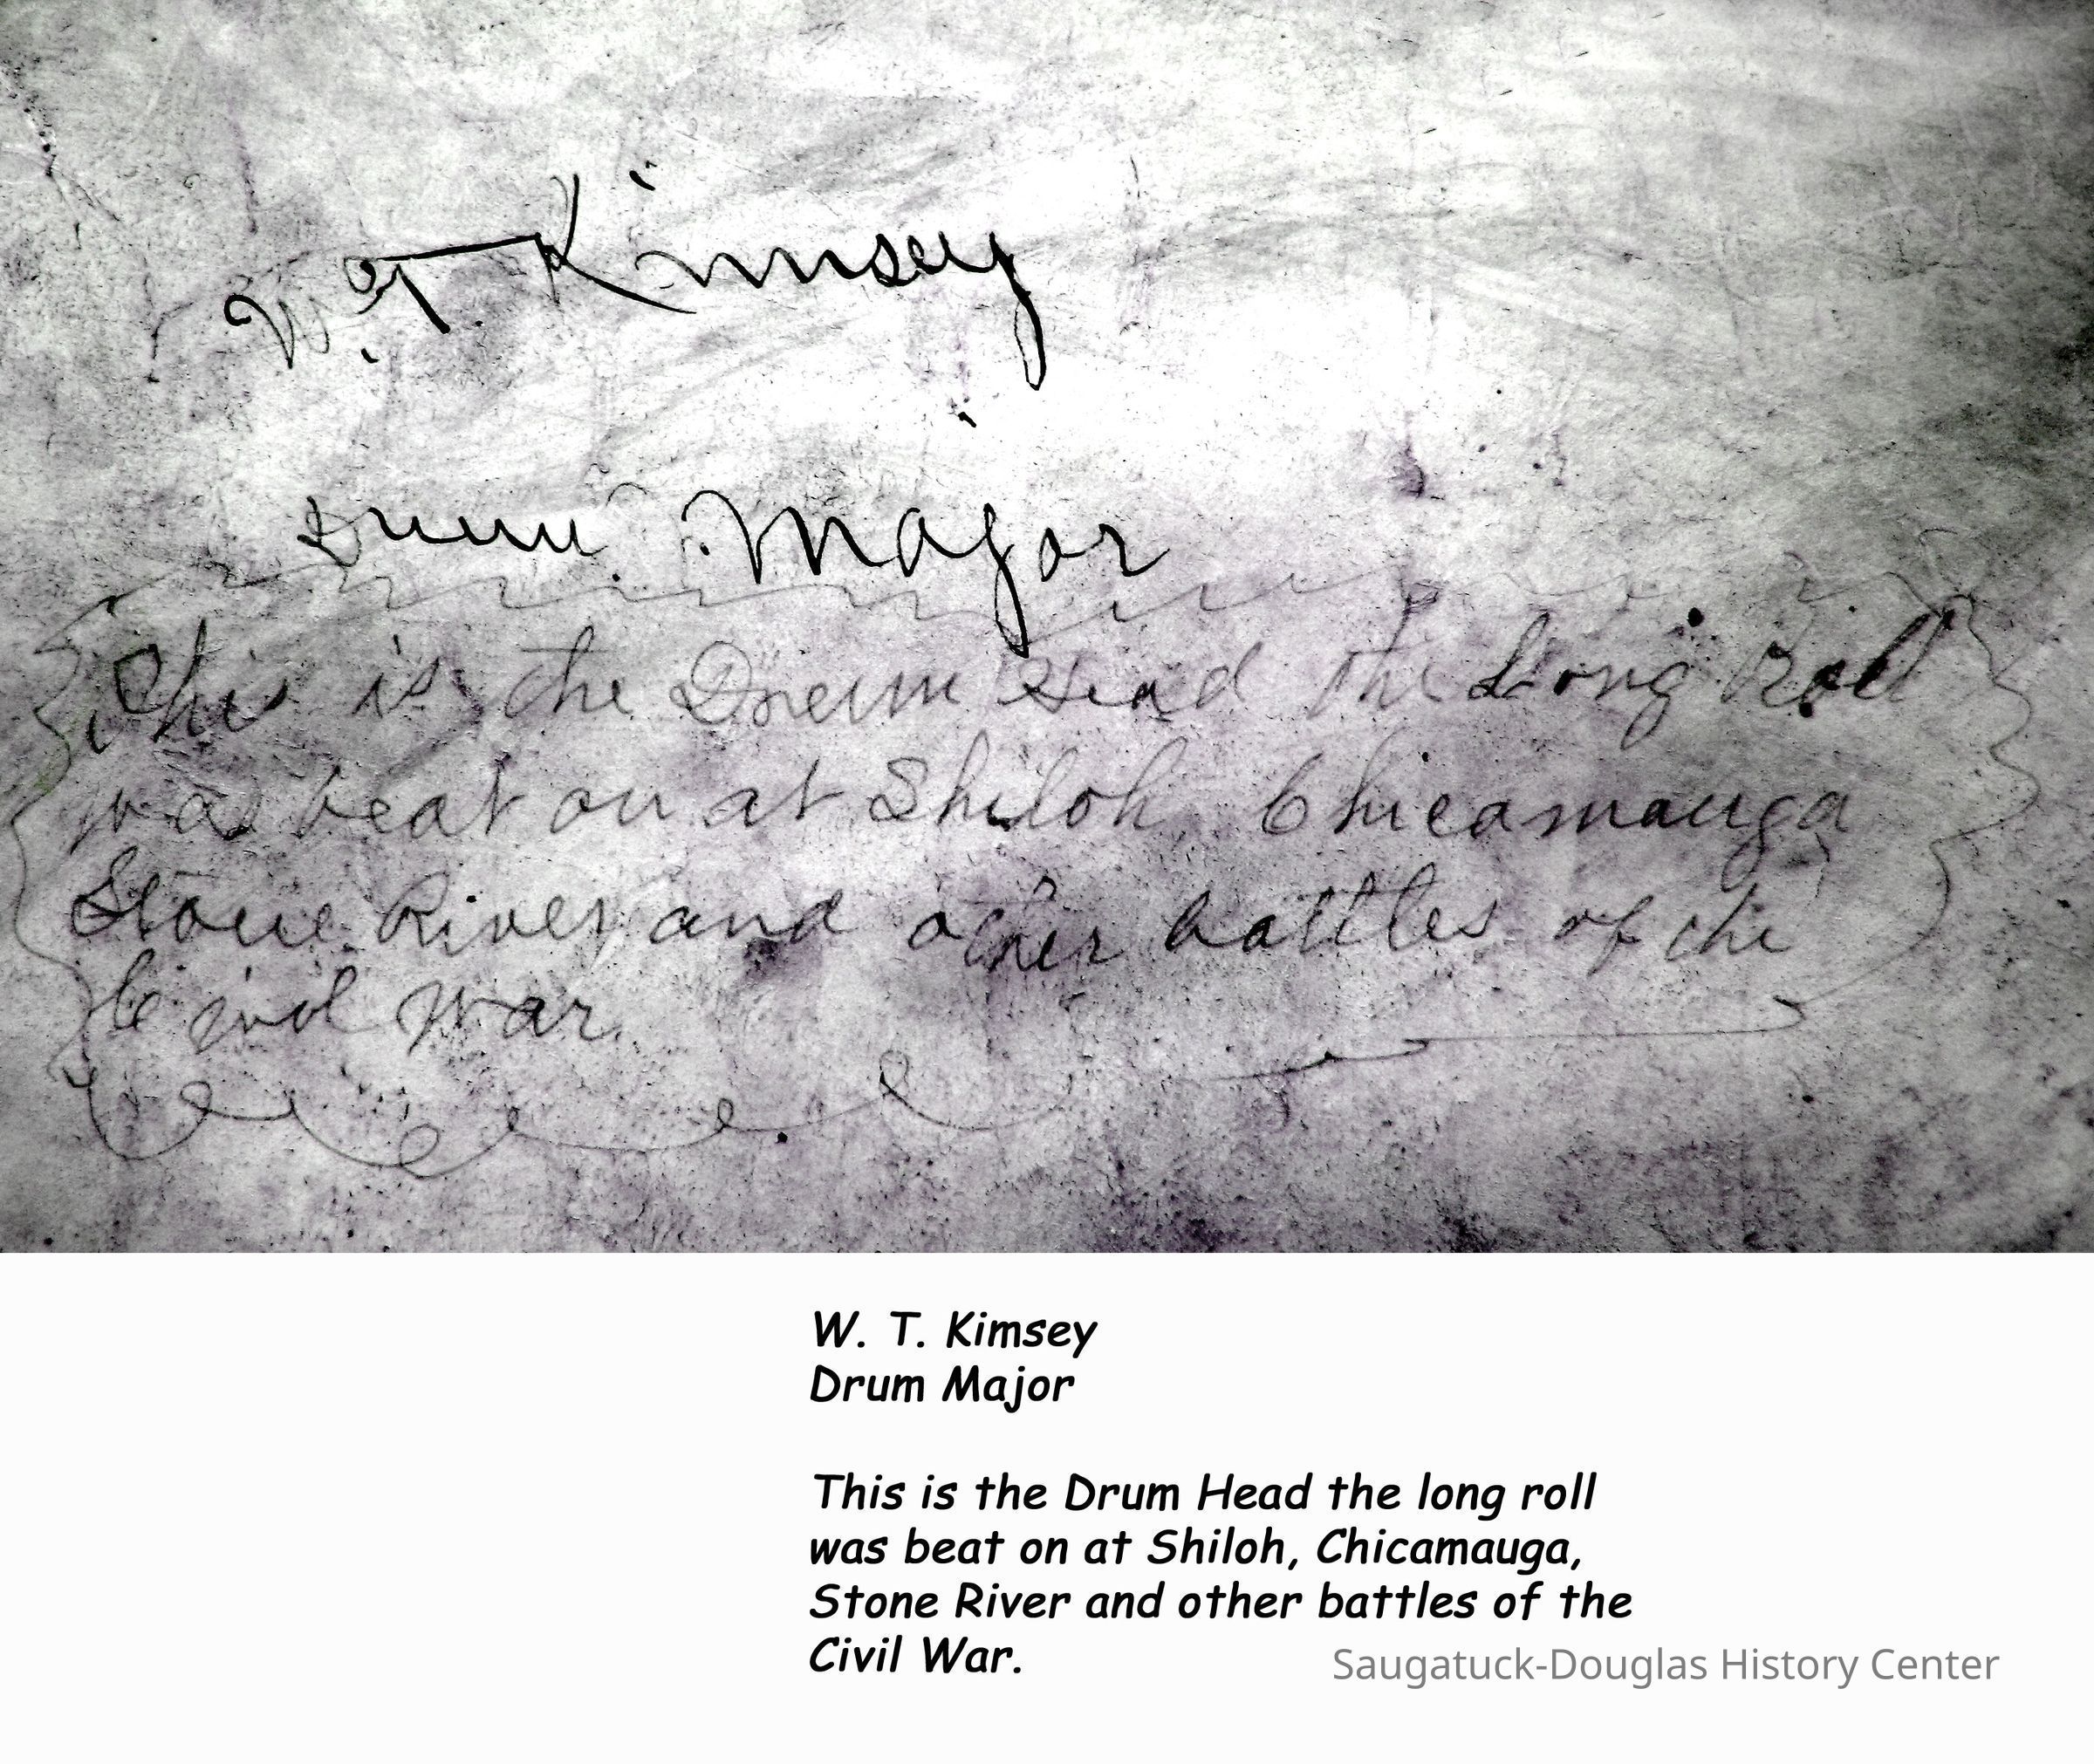 W. T. Kimsey
Drum Major
This is the Drum Head the Long Roll
was beat on at Shiloh Chicamauga
Stone River and other battles of the
Civil War.
W. T. Kimsey
Drum Major
This is the Drum Head the long roll
was beat on at Shiloh, Chicamauga,
Stone River and other battles of the
Civil War.
Saugatuck-Douglas History Center